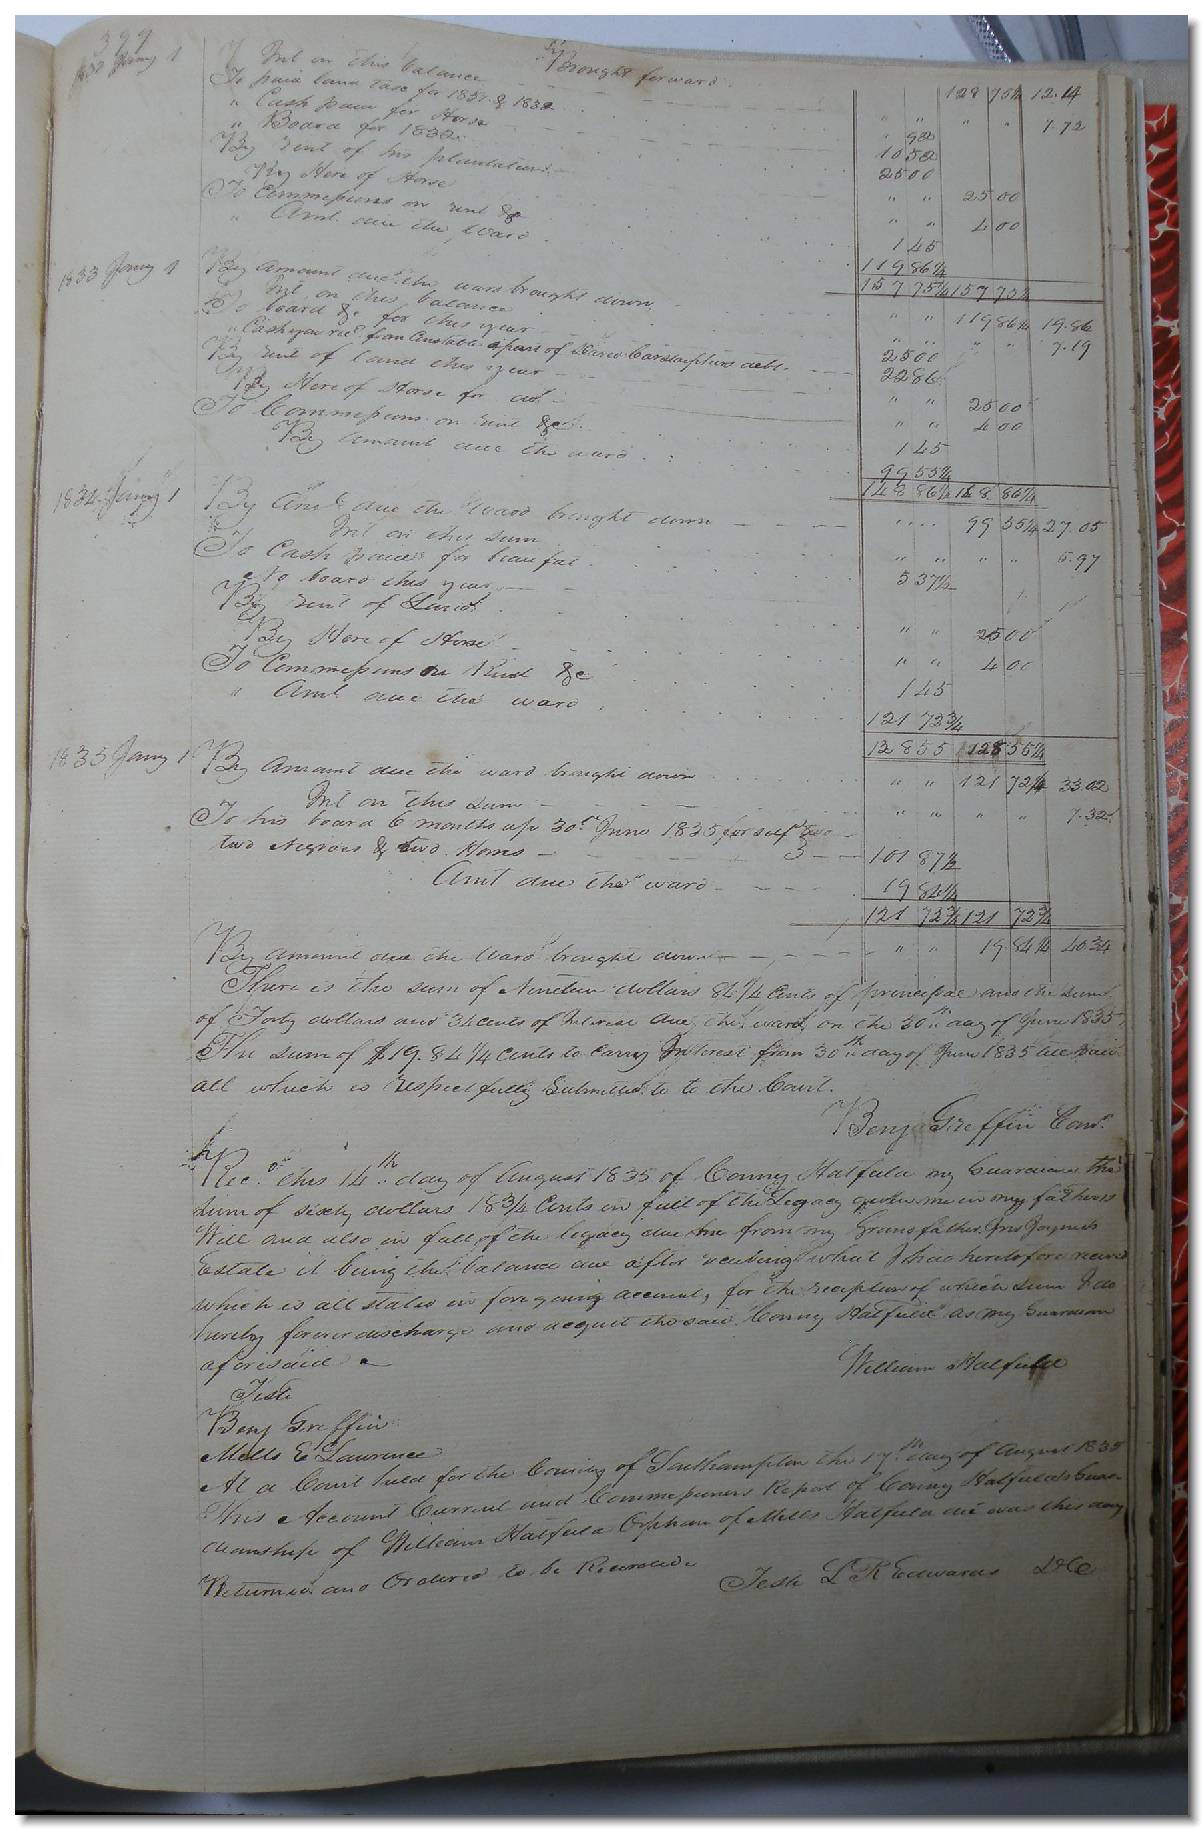 399
By brought forward 128 75¼ 12.14
Jany 1 Int on this balance " " " " 7.72
To paid land tax for 1831 & 1832 " 90
" Cash paid for Horse 10 50
" Board for 1832 25 00
By rent of his plantation " " 25 00
By Hire of Horse " " 4 00
To Commissions on rent &c 1 45
" Amt due the Ward 119 86¼
157 75¼ 157 75¼
1833 Jany 1 By amount due the ward brought down " " 119 86¼ 19.86
Int on this balance " " " " 7.19
To board &c for this year 25 00
" Cash you recd from Constable a part of debt 22 86
By rent of land this year " " 25 00
By Hire of Horse for do " " 4 00
To Commissions on rent &c 1 45
By Amount due the ward 99 55¼
148 86¼ 148 86¼
1834 Jany 1 By Amt due the Ward brought down " " 99 55¼ 27.05
Int on this sum " " " " 5.97
To Cash paid for 5 37½
To board this year
By rent of Land " " 25 00
By Hire of Horse " " 4 00
To Commissions on Rent &c 1 45
" Amt due the ward 121 72¾
128 55 128 55¼
1835 Jany 1 By Amount due the ward brought down " " 121 72¾ 33.02
Int on this sum " " " " 7.32
To his board 6 months up to 30th June 1835 for self two
two Negroes & two Horses 101 87½
Amt due the ward 19 84¼
121 72¾ 121 72¾
By amount due the Ward brought down " " 19 84¼ 40.34
There is the sum of Nineteen dollars 84¼ Cents of principal and the sum
of Forty dollars and 34 cents of Interest due the ward on the 30th day of June 1835
The sum of $19.84¼ Cents to carry Interest from 30th day of June 1835 till paid
all which is respectfully submitted to the Court.
Benj Griffin Comr
Recd this 14th day of August 1835 of Conny Hatfield my Guardian the
sum of sixty dollars 18¾ Cents in full of the Legacy given me in my fathers
Will and also in full of the legacy due me from my Grandfather Joyners
Estate it being the balance due after receiving what I had heretofore received
which is all stated in foregoing account, for the reception of which sum I do
hereby forever discharge and acquit the said Conny Hatfield as my Guardian
aforesaid
William Hatfield
Teste
Benj Griffin
Mills E Lawrence
At a Court held for the County of Southampton the 17th day of August 1835
This Account Current and Commissioners Report of Conny Hatfields Guar-
dianship of William Hatfield Orphan of Mills Hatfield decd was this day
Returned and Ordered to be Recorded
Teste L R Edwards DC